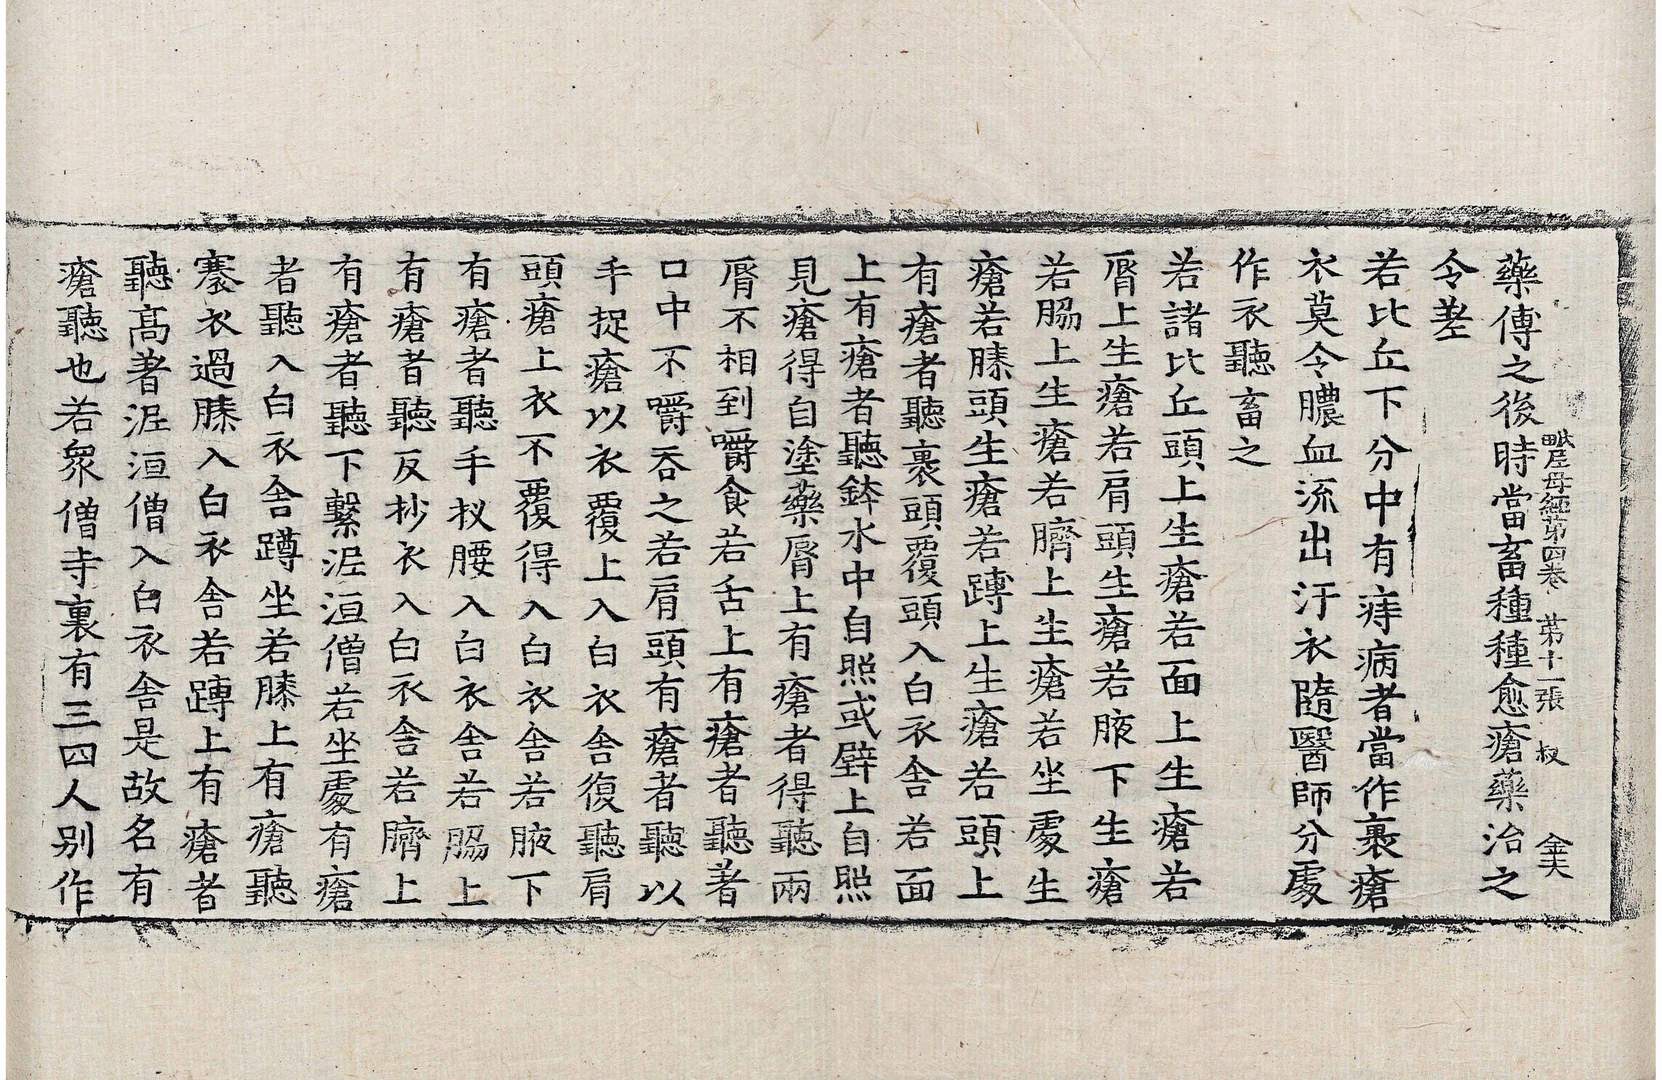 毗尼母經第四卷 第十一張 叔 金夫
藥傅之後時當畜種種愈瘡藥治之
令差
若比丘下分中有痔病者當作裹瘡
衣莫令膿血流出汙衣隨醫師分處
作衣聽畜之
若諸比丘頭上生瘡若面上生瘡若
脣上生瘡若肩頭生瘡若腋下生瘡
若脇上生瘡若臍上生瘡若坐處生
瘡若膝頭生瘡若䏝上生瘡若頭上
有瘡者聽裹頭覆頭入白衣舍若面
上有瘡者聽鉢水中自照或壁上自照
見瘡得自塗藥脣上有瘡者得聽兩
脣不相到嚼食若舌上有瘡者聽著
口中不嚼吞之若肩頭有瘡者聽以
手捉瘡以衣覆上入白衣舍復聽肩
頭瘡上衣不覆得入白衣舍若腋下
有瘡者聽手扠腰入白衣舍若脇上
有瘡者聽反抄衣入白衣舍若臍上
有瘡者聽下繫泥洹僧若坐處有瘡
者聽入白衣舍蹲坐若膝上有瘡聽
褰衣過膝入白衣舍若䏝上有瘡者
聽高著泥洹僧入白衣舍是故名有
瘡聽也若衆僧寺裏有三四人別作